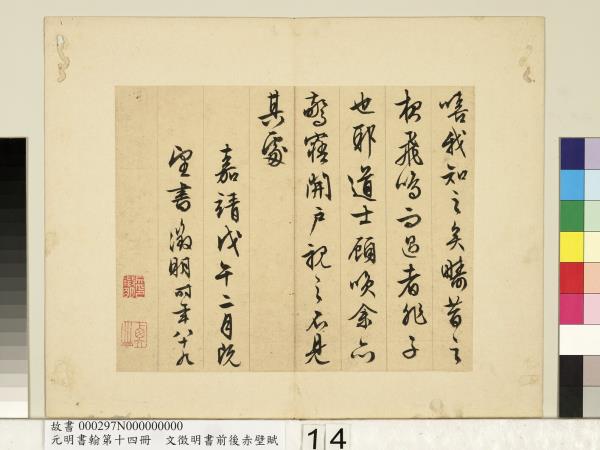 嘻我知之矣疇昔之
夜飛鳴而過者非子
也耶道士顧笑余亦
驚寤開戶視之不見
其處
嘉靖戊午二月既
望書徵明時年八十九
故書 000297N000000000
元明書翰第十四冊 文徵明書前後赤壁賦
14